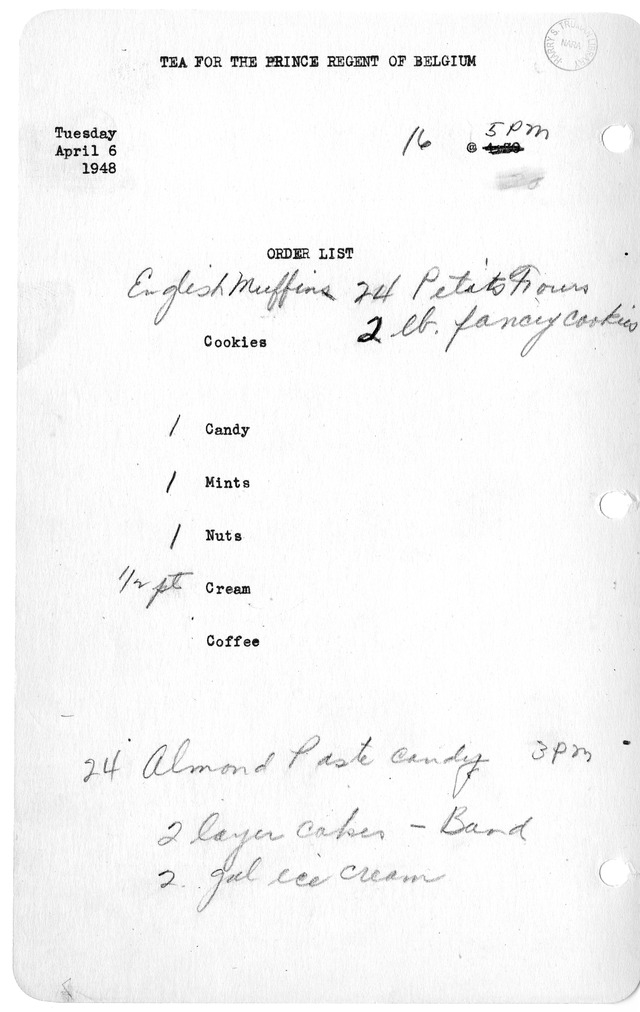 HARRY S. TRUMAN LIBRARY
NARA
TEA FOR THE PRINCE REGENT OF BELGIUM
Tuesday
April 6
1948
16 @ 4:30 5 PM
ORDER LIST
English Muffins 24 Petits Fours
Cookies 2 lb. fancy cookies
1 Candy
1 Mints
1 Nuts
1/2 pt Cream
Coffee
24 Almond Paste candy 3 PM
2 layer cakes - Band
2 gal ice cream